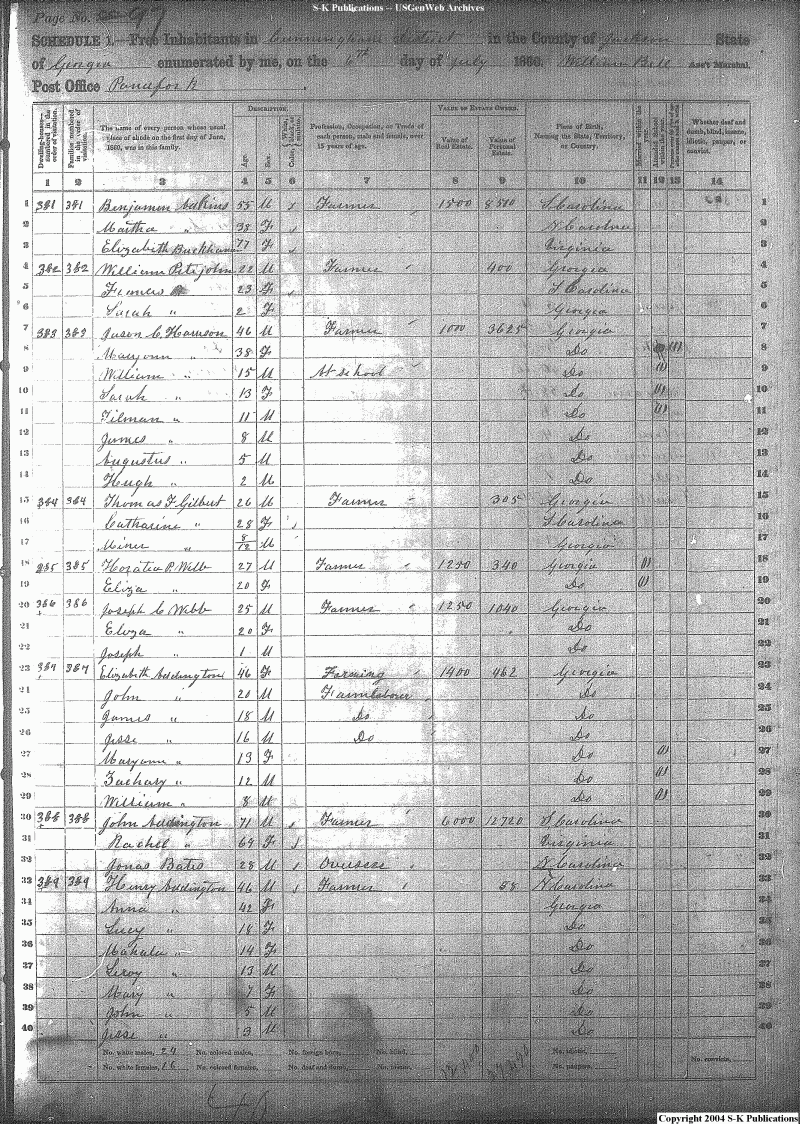 S-K Publications -- USGenWeb Archives
Page No. 97
SCHEDULE 1.—Free Inhabitants in Cunningham District in the County of Jackson State
of Georgia enumerated by me, on the 6th day of July 1860. William Bell Ass't Marshal.
Post Office
DESCRIPTION. VALUE OF ESTATE OWNED.
Dwelling-houses—numbered in the order of visitation. Families numbered in the order of visitation. The name of every person whose usual place of abode on the first day of June, 1860, was in this family. Age. Sex. Color, White, black, or mulatto. Profession, Occupation, or Trade of each person, male and female, over 15 years of age. Value of Real Estate. Value of Personal Estate. Place of Birth, Naming the State, Territory, or Country. Married within the year. Whether deaf and dumb, blind, insane, idiotic, pauper, or convict.
1 2 3 4 5 6 7 8 9 10 11 12 13 14
1 381 381 Benjamin Adkins 55 M Farmer 1500 8500 S Carolina 1
2 Martha " 38 F Carolina 2
3 Elizabeth 77 F Virginia 3
4 382 382 William Petijohn 22 M Farmer 400 Georgia 4
5 23 F S Carolina 5
6 Sarah " 2 F Georgia 6
7 383 383 Jason C Harrison 46 M Farmer 1000 3625 Georgia 7
8 Maryann " 38 F Do 8
9 William " 15 M At school Do 9
10 Sarah " 13 F Do 10
11 Tilman " 11 M Do 11
12 James " 8 M Do 12
13 Augustus " 5 M Do 13
14 Hugh " 2 M Do 14
15 384 384 Thomas F Gilbert 26 M Farmer 305 Georgia 15
16 Catharine " 28 F S Carolina 16
17 Miner " 8/12 M Georgia 17
18 385 385 Horatio P. Webb 27 M Farmer 1250 340 Georgia 18
19 Eliza " 20 F Do 19
20 386 386 Joseph C Webb 25 M Farmer 1250 1040 Georgia 20
21 Eliza " 20 F Do 21
22 Joseph " 1 M Do 22
23 387 387 Elizabeth Addington 46 F Farming 1400 462 Georgia 23
24 John " 20 M Farmlaborer Do 24
25 James " 18 M Do Do 25
26 Jesse " 16 M Do Do 26
27 Maryann " 13 F Do 27
28 Zachary " 12 M Do 28
29 William " 8 M Do 29
30 388 388 John Addington 71 M Farmer 6000 12720 S Carolina 30
31 Rachel " 69 F Virginia 31
32 Jonas Bates 28 M Overseer Carolina 32
33 389 389 Henry Addington 46 M Farmer 58 N Carolina 33
34 Anna " 42 F Georgia 34
35 Lucy " 18 F Do 35
36 Mahala " 14 F Do 36
37 Leroy " 13 M Do 37
38 Mary " 7 F Do 38
39 John " 5 M Do 39
40 Jesse " 3 M Do 40
No. white males, 24 No. colored males, No. foreign born, No. blind, No. idiotic, No. convicts,
No. white females, 16 No. colored females, No. deaf and dumb, No. insane, No. paupers,
Copyright 2004 S-K Publications